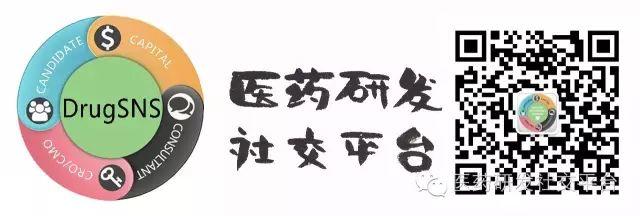 CANDIDATE
CAPITAL
$
DrugSNS
CONSULTANT
CRO/CMO
医药研发
社交平台
医药研发社交平台